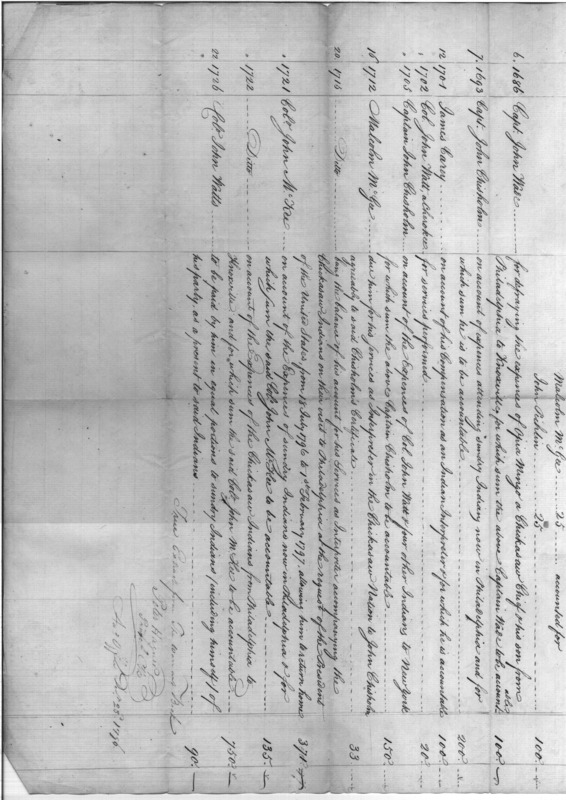 Malcolm McGee ...... 25 ...... accounted for
John Pitchlin ...... 25 ...... 100.
6. 1686 Capt. John Wade ...... for defraying the expences of Opia Mingo a Chickasaw Chief & his son from
Philadelphia to Knoxville, for which sum the above Captain Wade is to be accountable ...... 100
7. 1693 Capt. John Chisholm ...... on account of expences attending sundry Indians now in Philadelphia and for
which sum he is to be accountable ...... 200.
12 1701 James Carey ...... on account of his Compensation as an Indian Interpreter & for which he is accountable 100
" 1702 Col. John Watt, a Cherokee for services performed ...... 20.
" 1705 Captain John Chisholm ...... on account of the Expences of Col John Watt & four other Indians to New York
for which sum the above Captain Chisholm to be accountable ...... 150
15 1712 Malcolm McGee ...... due him for his services as Interpreter in the Chickasaw Nation to John Chisholm
agreeably to said Chisholm's Certificate ......
20. 1716 ...... Ditto ...... being the balance of his account for his Services as Interpreter accompanying the 33
Chickasaw Indians on their visit to Philadelphia at the request of the President
of the United States from 13 July 1796 to 1st February 1797, allowing him to return home 371
" 1721 Colo. John McKee ...... on account of the Expences of sundry Indians now in Philadelphia & for
which sum the said Colo. John McKee to be accountable ...... 135
" 1722 ...... Ditto ...... on account of the Expences of the Chickasaw Indians from Philadelphia to
Knoxville and for which sum the said Colo. John McKee to be accountable 750
22 1726 Colo. John Watts ...... to be paid by him in equal portions to sundry Indians (including himself) of
his party, as a present to said Indians ...... 90.
True Extract from